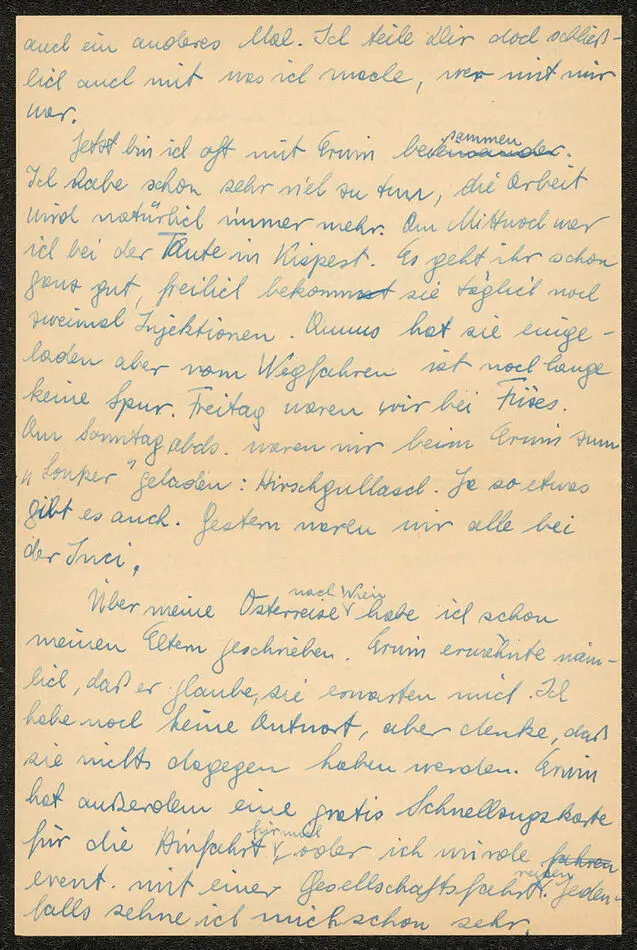 auch ein anderes Mal. Ich teile Dir doch schließ-
lich auch mit was ich mache, wer mit mir
war.
Jetzt bin ich oft mit Erwin beisammen.
Ich habe schon sehr viel zu tun, die Arbeit
wird natürlich immer mehr. Am Mittwoch war
ich bei der Tante in Kispest. Es geht ihr schon
ganz gut, freilich bekommt sie täglich noch
zweimal Injektionen. hat sie einge-
laden aber vom Wegfahren ist noch lange
keine Spur. Freitag waren wir bei
Am Sonntag abds. waren wir beim Erwin zum
"Souper" geladen: Hirschgullasch. Ja so etwas
gibt es auch. Gestern waren wir alle bei
der Inci,
Über meine Osterreise nach Wien habe ich schon
meinen Eltern geschrieben. Erwin erwähnte näm-
lich, daß er glaube, sie erwarten mich. Ich
habe noch keine Antwort, aber denke, daß
sie nichts dagegen haben werden. Erwin
hat außerdem eine gratis Schnellzugskarte
für die Hinfahrt für mich, oder ich würde
event. mit einer Gesellschaftsfahrt reisen. Jeden-
falls sehne ich mich schon sehr.